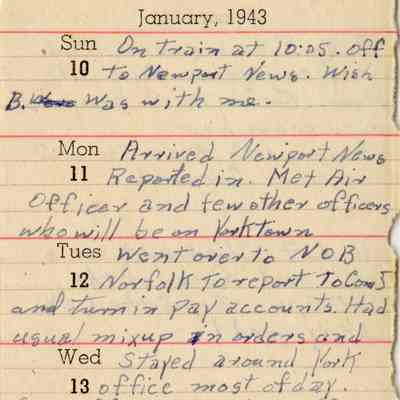 January, 1943
Sun On train at 10:05. Off
10 to Newport News. Wish
B. was with me.
Mon Arrived Newport News
11 Reported in. Met Air
Officer and few other officers
who will be on Yorktown
Tues Went over to NOB
12 Norfolk to report to Com 5
and turn in pay accounts. Had
usual mixup in orders and
Wed Stayed around York
13 office most of day.